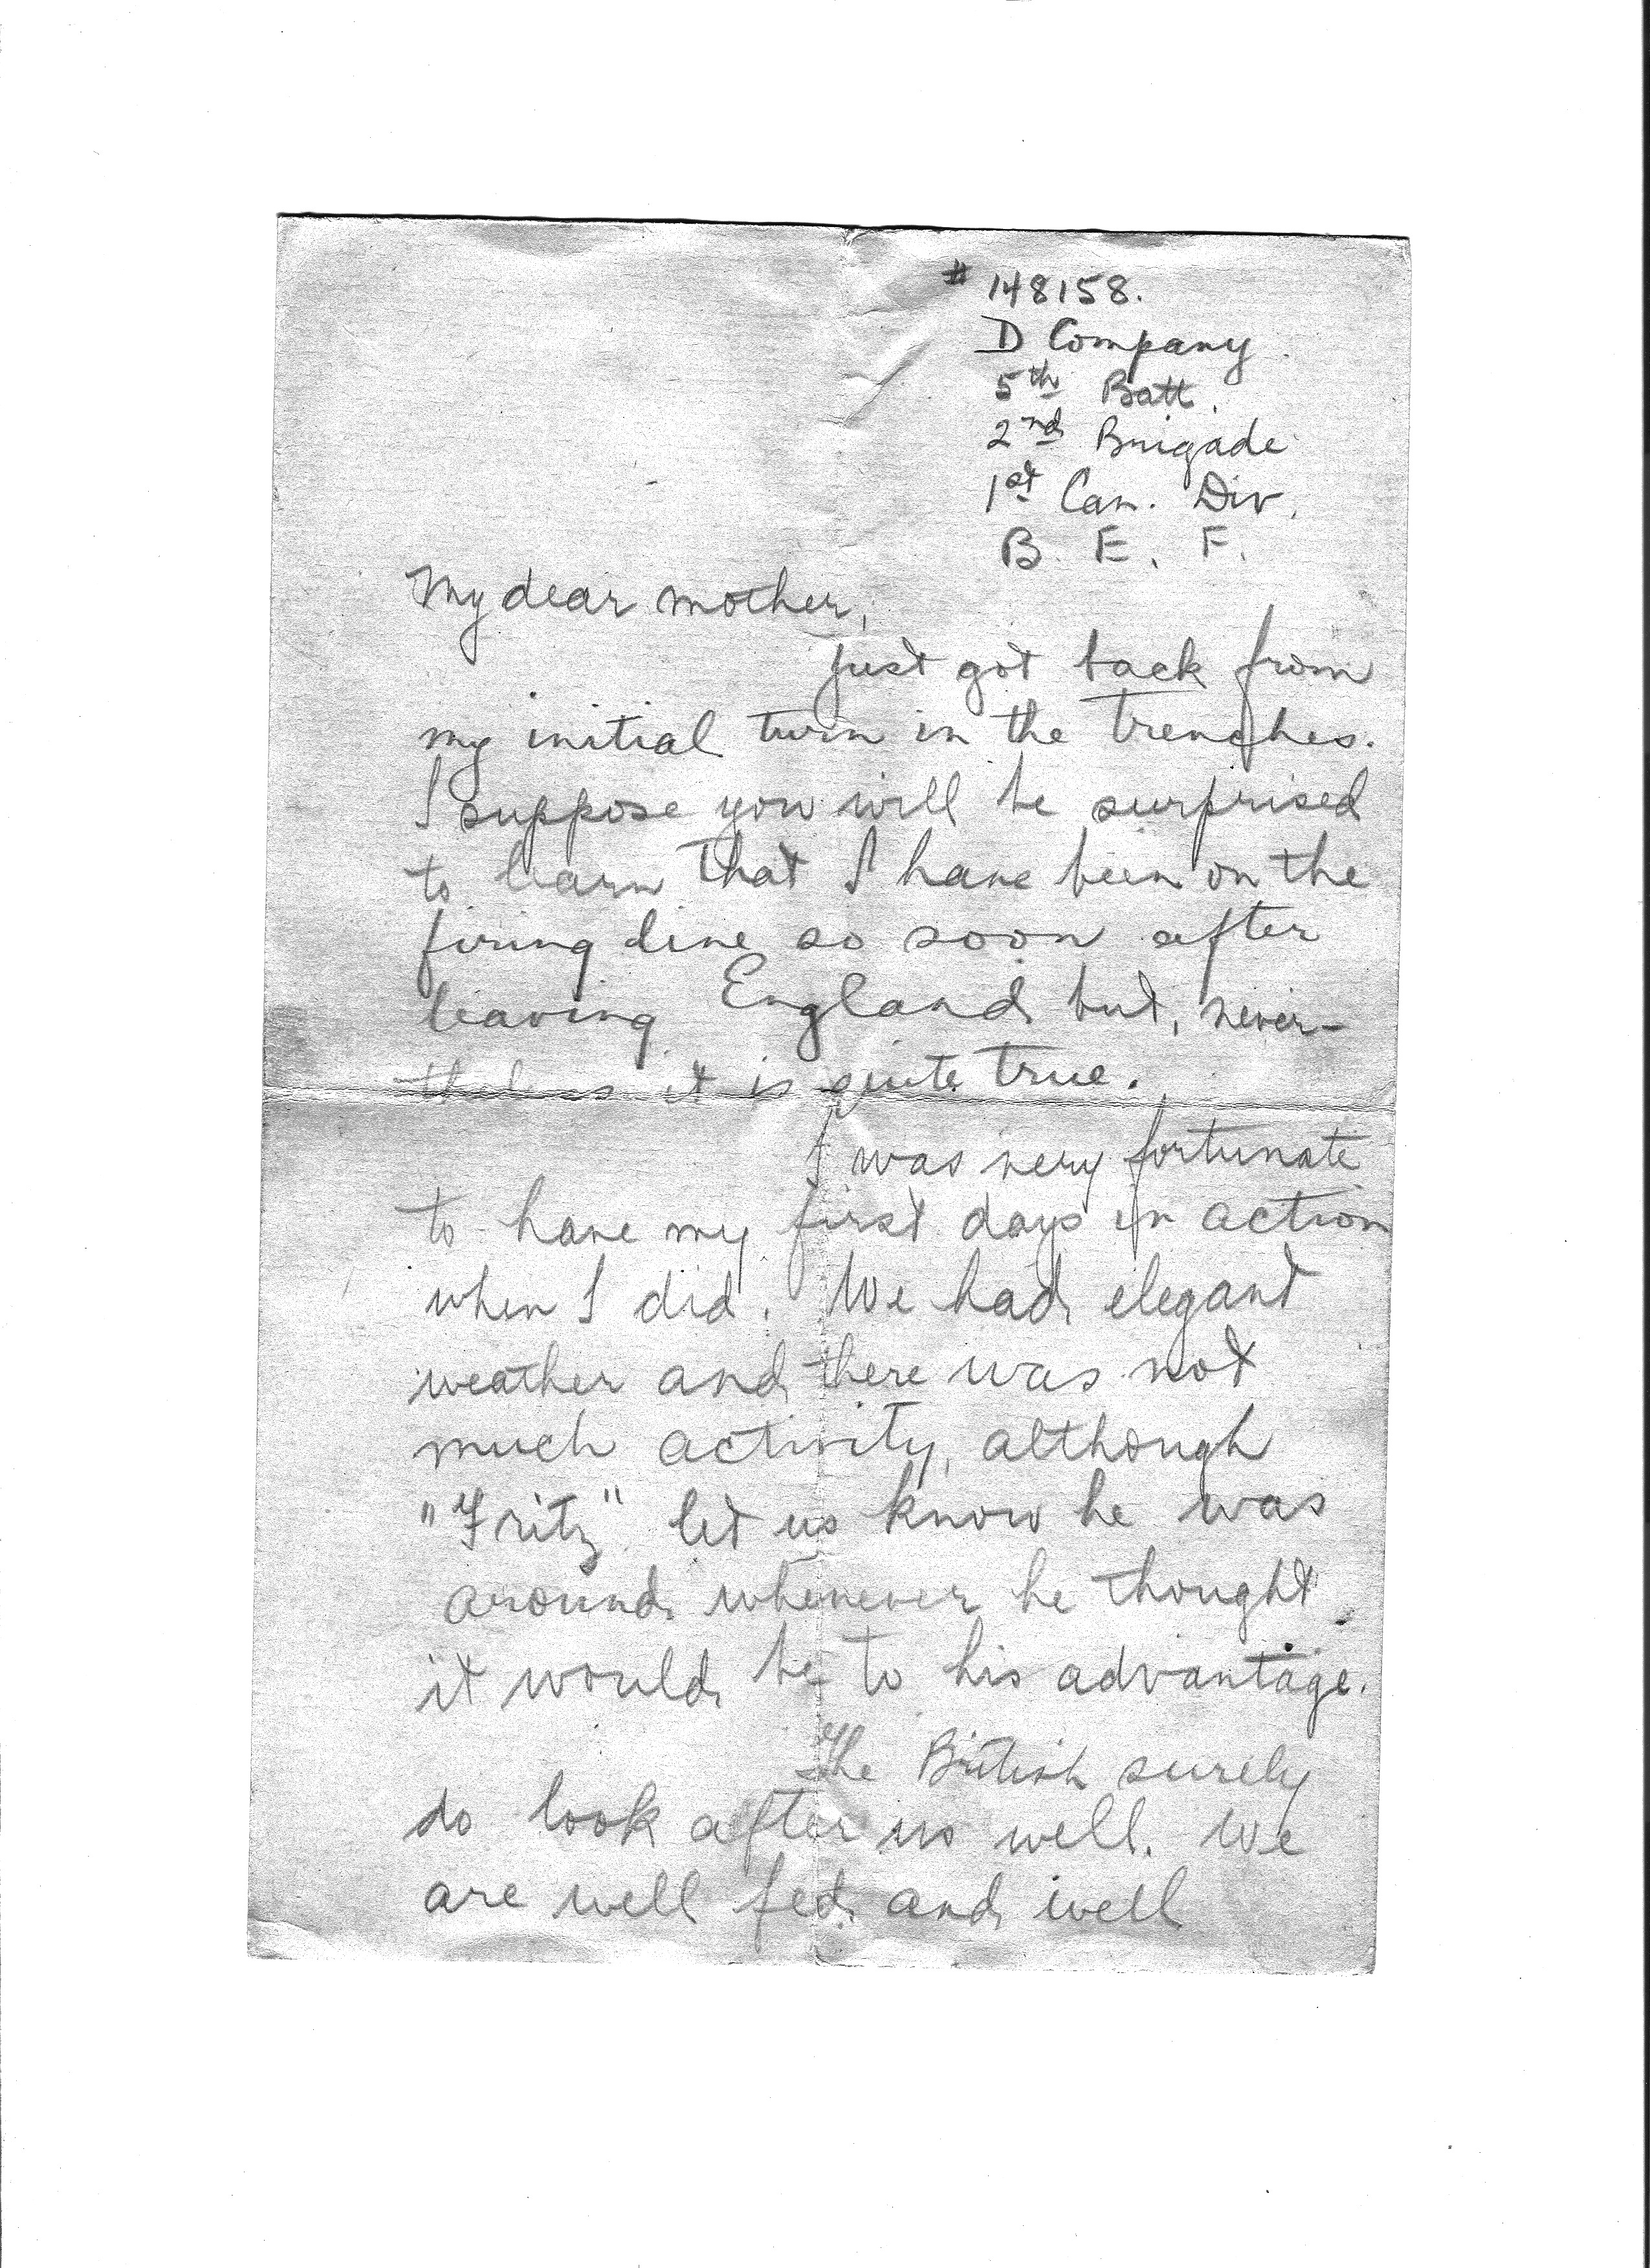 # 148158.
D Company
5th Batt.
2nd Brigade
1st Can. Div.
B. E. F.
My dear mother,
Just got back from
my initial turn in the trenches.
I suppose you will be surprised
to learn that I have been on the
firing line so soon after
leaving England but, never-
theless it is quite true.
I was very fortunate
to have my first days in action
when I did. We had elegant
weather and there was not
much activity, although
"Fritz" let us know he was
around whenever he thought
it would be to his advantage.
The British surely
do look after us well. We
are well fed and well